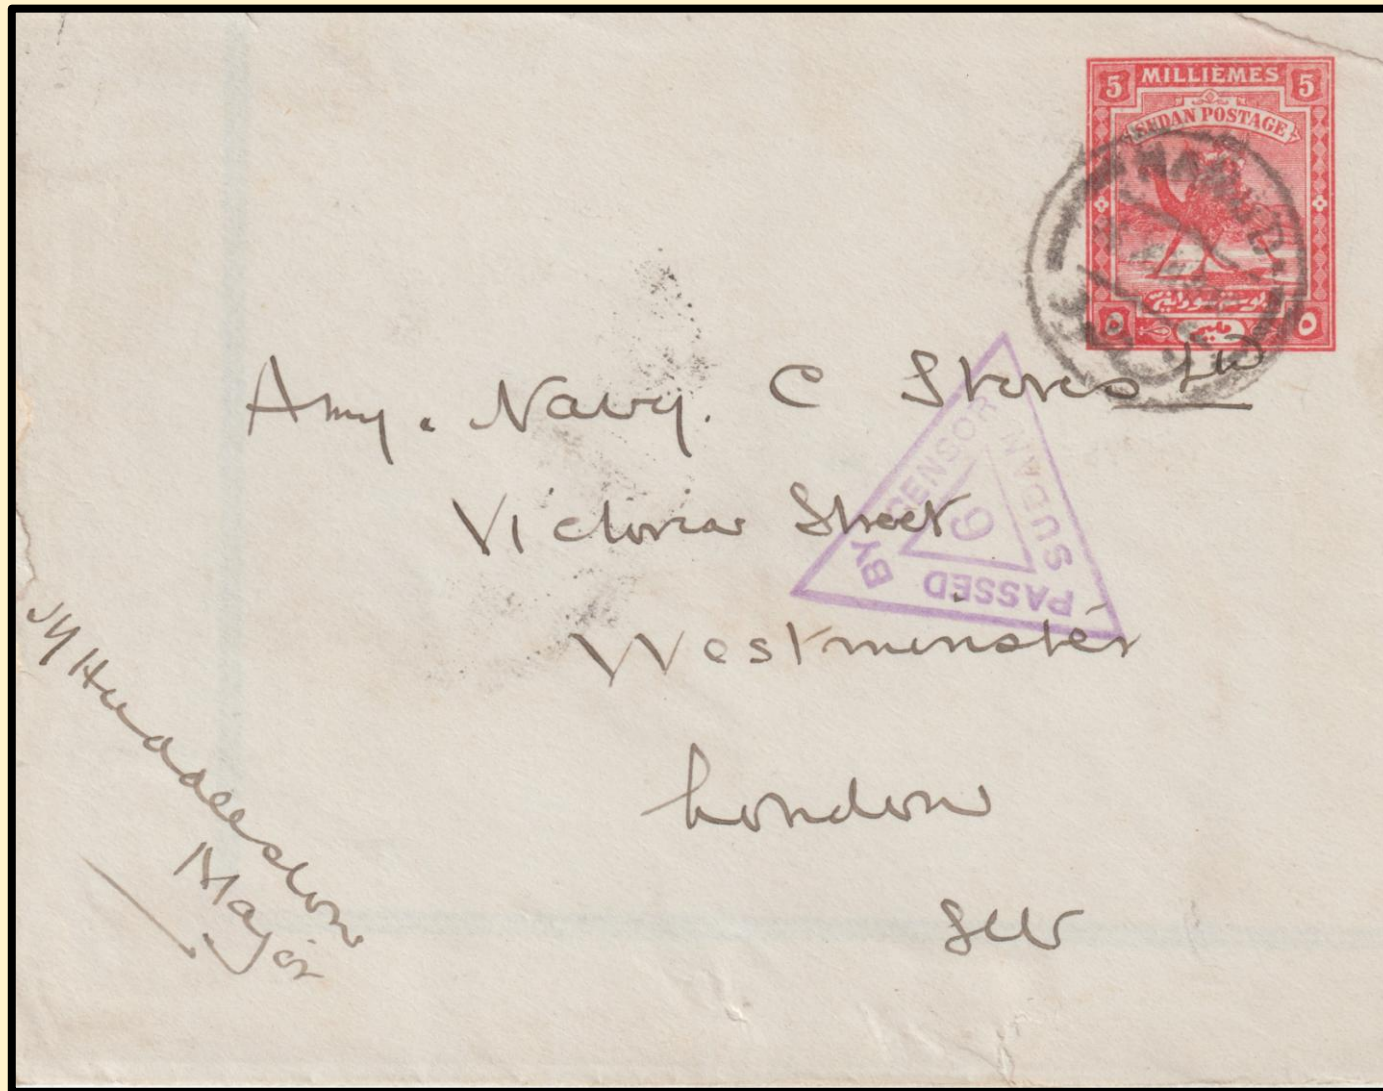 5 MILLIÈMES 5
SUDAN POSTAGE
بوستة سودانية
٥ مليم ٥
NAHUD
Army. Navy. C Stores Ltd
Victoria Street
Westminster
London
SW
PASSED BY CENSOR
SUDAN
6
Huddleston
Major